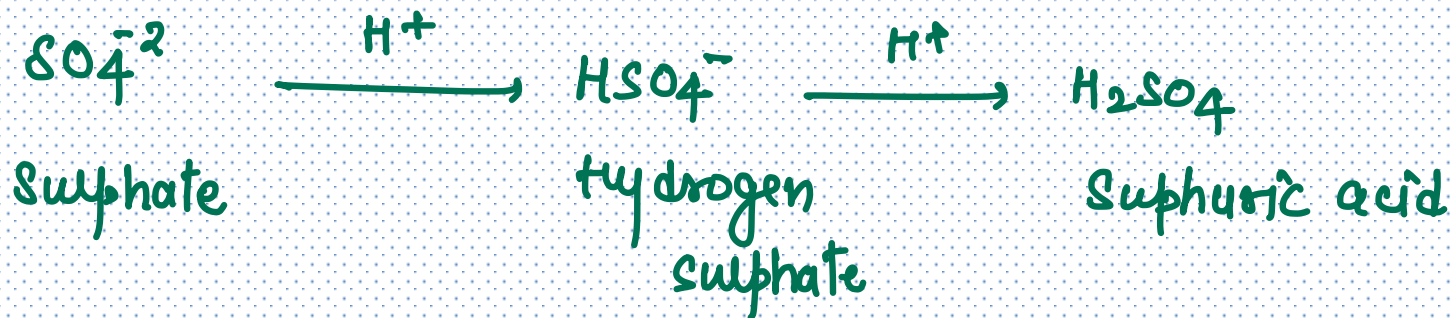 SO₄⁻² H⁺ → HSO₄⁻ H⁺ → H₂SO₄
Sulphate Hydrogen sulphate Suphuric acid